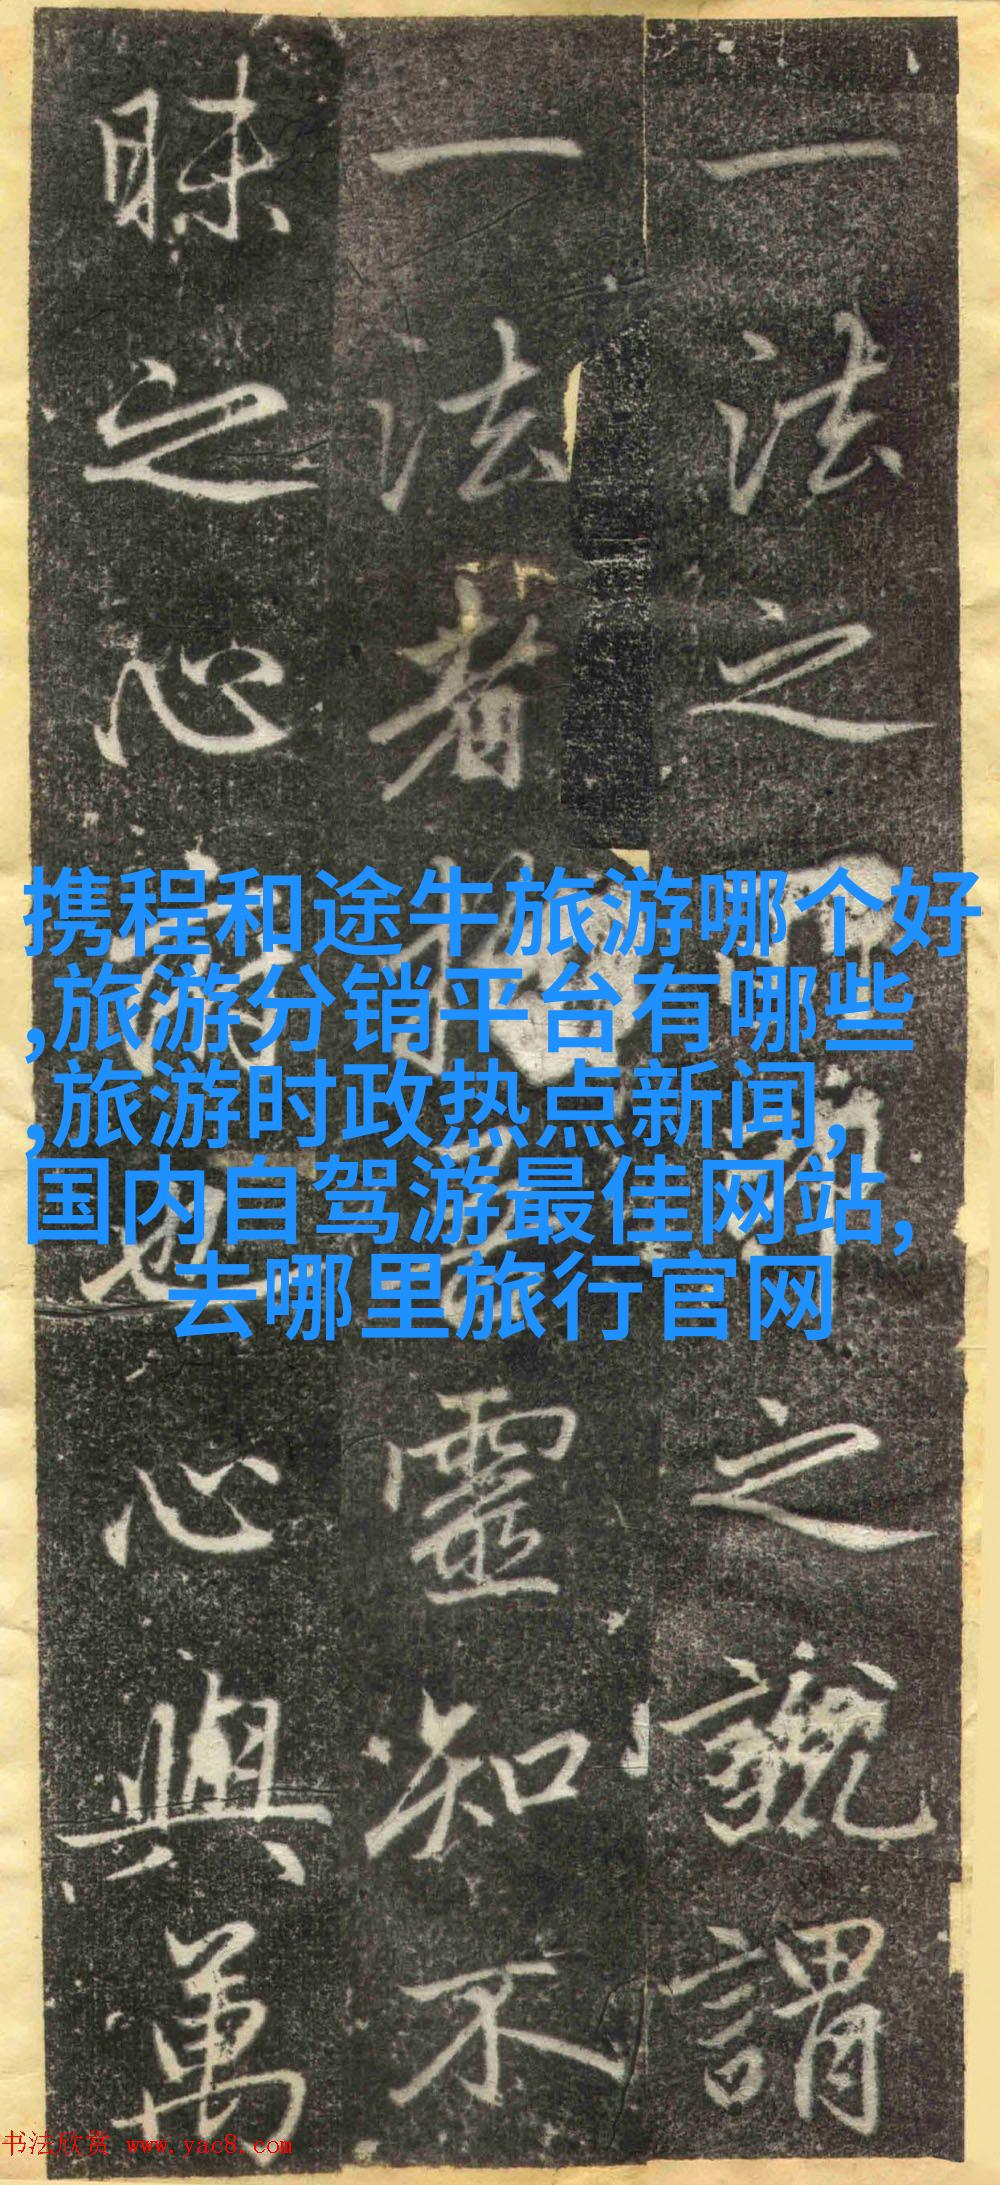 携程和途牛旅游哪个好
,旅游分销平台有哪些
,旅游时政热点新闻,
国内自驾游最佳网站,
去哪里旅行官网
一法之之謂
一法者靈知不
昧之心也心與萬
书法欣赏 www.yac8.com